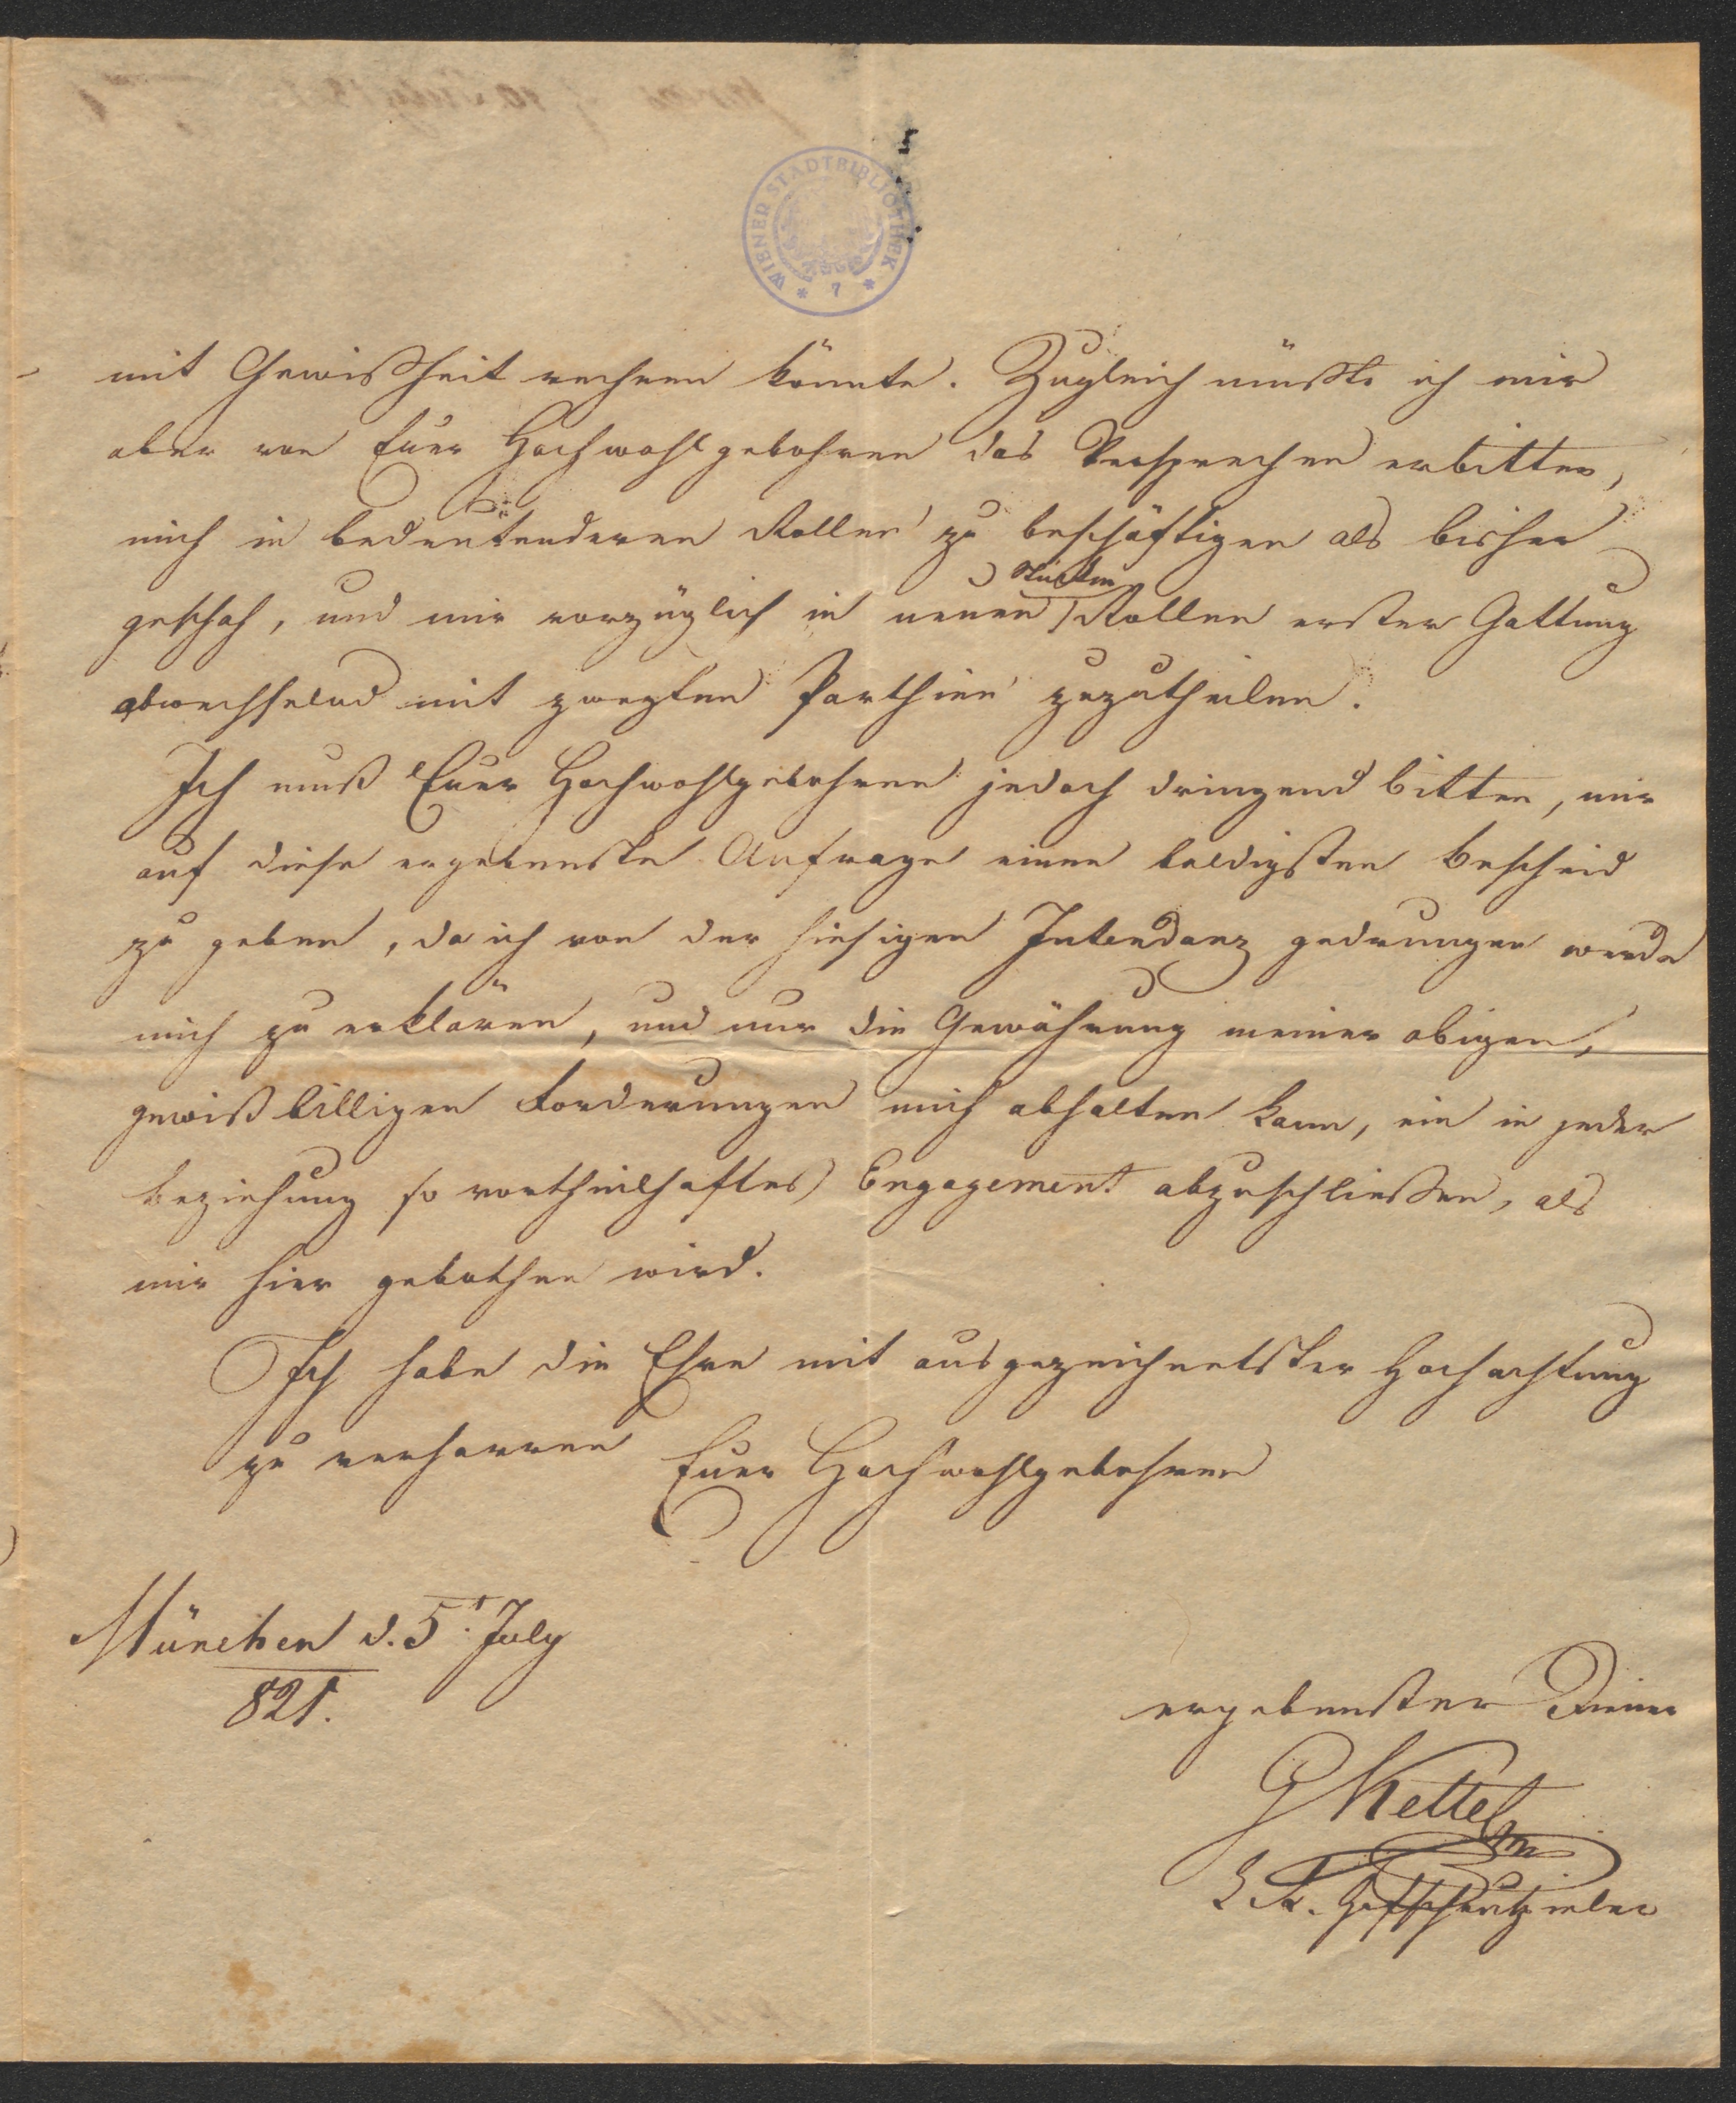 WIENER STADTBIBLIOTHEK
* 7 *
mit Gewißheit rechnen könnte. Zugleich müßte ich mir
aber von Euer Hochwohlgebohren das Versprechen erbitten,
mich in bedeutenderen Rollen zu beschäftigen als bisher
geschah, und mir vorzüglich in neuen Stücken Rollen erster Gattung
abwechselnd mit zweyten Parthien zuzutheilen.
Ich muß Euer Hochwohlgebohren jedoch dringend bitten, mir
auf diese ergebenste Anfrage einen baldigsten Bescheid
zu geben, da ich von der hiesigen Intendanz gedrungen werde
mich zu erklären, und nur die Gewährung meiner obigen,
gewiß billigen Forderungen mich abhalten kann, ein in jeder
Beziehung so vortheilhaftes Engagement abzuschließen, als
mir hier gebothen wird.
Ich habe die Ehre mit ausgezeichnetster Hochachtung
zu verharren Euer Hochwohlgebohren
München d. 5t July
821.
ergebenster Diener
G Kettel
K. K. Hofschauspieler